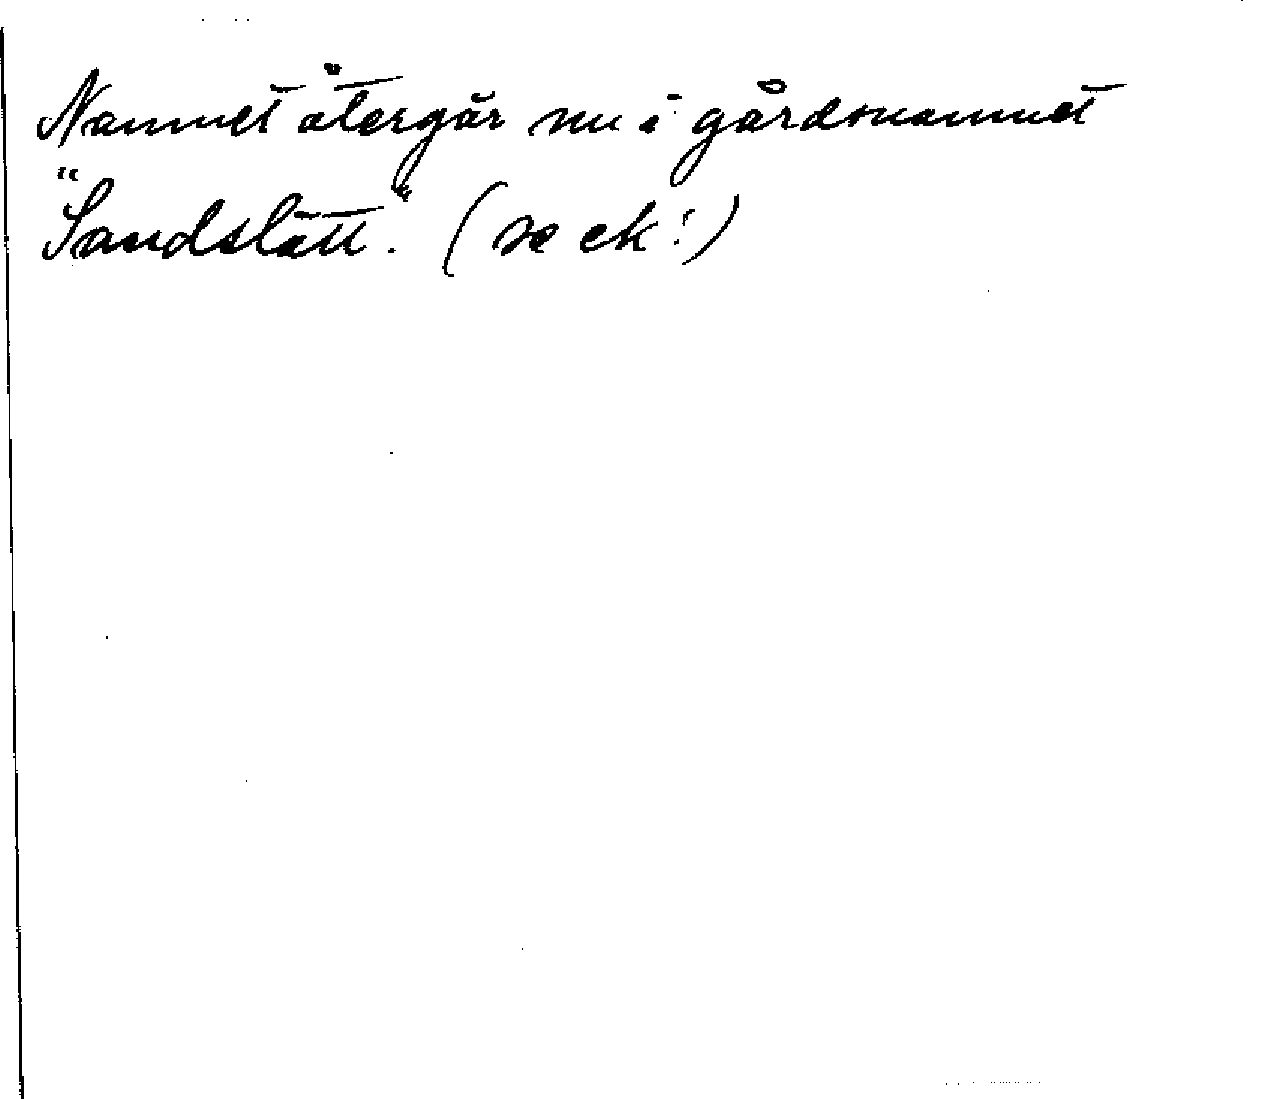 Namnet återgår nu i gårdsnamnet
"Sandslätt". (se ek!)